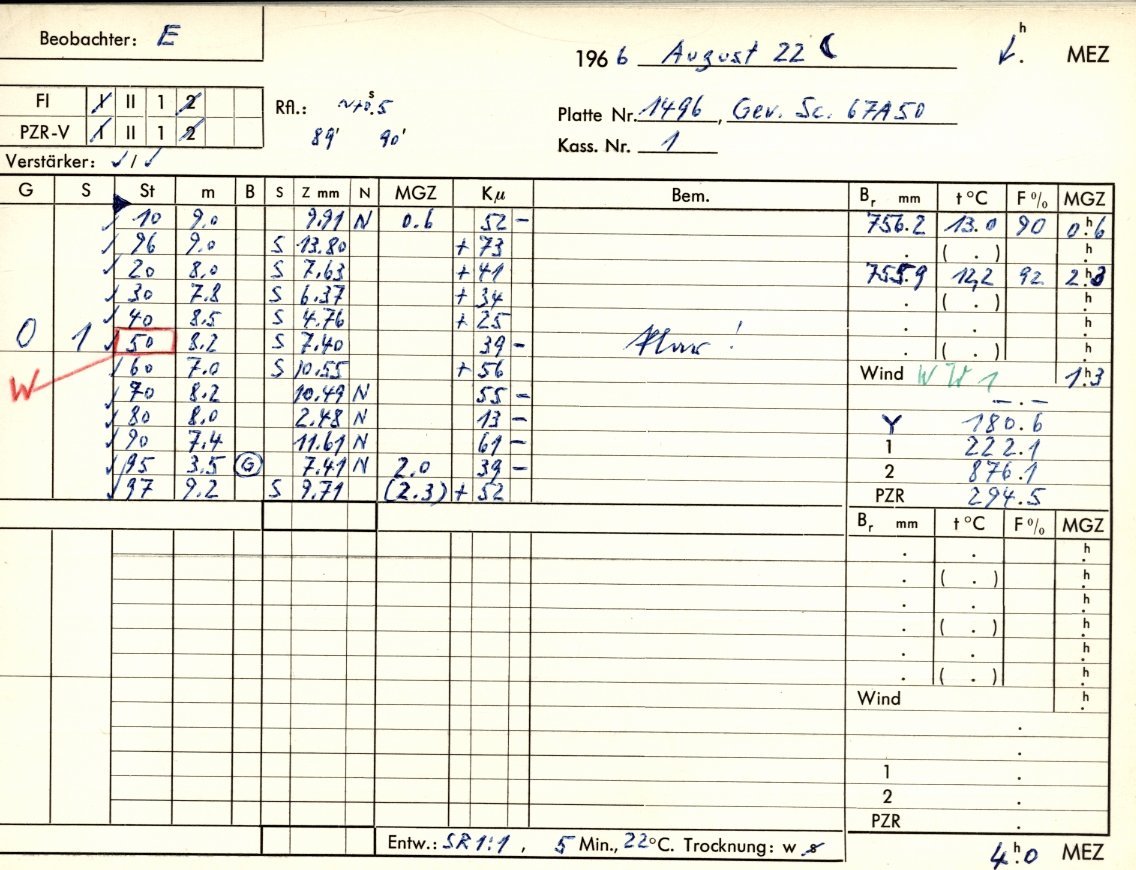 Beobachter: E
1966 August 22 h MEZ
FI I II 1 2
PZR-V I II 1 2
Verstärker: ✓/✓
Rfl.: s
89' 90'
Platte Nr. 1496, Gev. Sc. 67A50
Kass. Nr. 1
G S St m B S Z mm N MGZ Kμ Bem. Br mm t °C F % MGZ
✓ 10 9.0 9.91 N 0.6 52 – 756.2 13.0 90 0h.6
✓ 96 9.0 S 13.80 + 73 . ( . ) h.
✓ 20 8.0 S 7.63 + 41 755.9 12.2 92 2h.3
✓ 30 7.8 S 6.37 + 34 . ( . ) h.
✓ 40 8.5 S 4.76 + 25 . . h.
0 1 ✓ 50 8.2 S 7.40 39 – Klar! . ( . ) h.
W ✓ 60 7.0 S 10.55 + 56 Wind W 1 1h.3
✓ 70 8.2 10.49 N 55 – – . –
✓ 80 8.0 2.48 N 13 – Y 180.6
✓ 90 7.4 11.61 N 61 – 1 222.1
✓ 95 3.5 G 7.41 N 2.0 39 – 2 876.1
✓ 97 9.2 S 9.71 (2.3) + 52 PZR 294.5
Br mm t °C F % MGZ
. . h.
. ( . ) h.
. . h.
. ( . ) h.
. . h.
. ( . ) h.
Wind h.
.
.
1 .
2 .
PZR .
Entw.: SR 1:1, 5 Min., 22 °C. Trocknung: w s
4h.0 MEZ